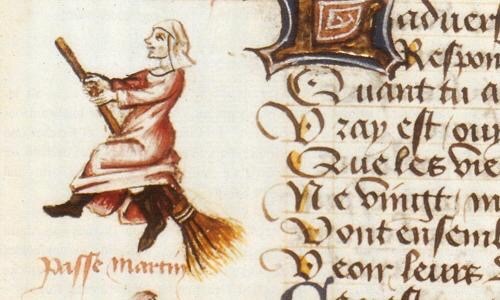 Ladvers
Respon
Quant tu a
Vray est ouy
Que les vie
Ne vingt m
Vont ensemb
Veoir leurs
passe martin